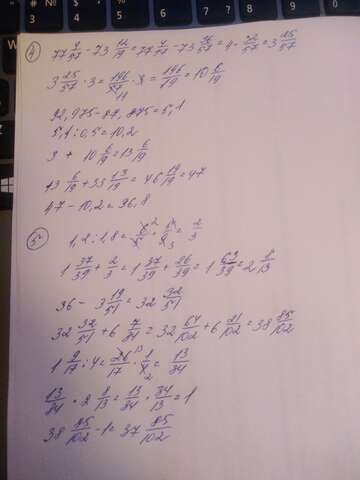 ④ 77 4/57 - 73 12/19 = 77 4/57 - 73 36/57 = 4 - 32/57 = 3 25/57
3 25/57 · 3 = 196/57 · 3 = 196/19 = 10 6/19
19
92,975 - 87,875 = 5,1
5,1 : 0,5 = 10,2
3 + 10 6/19 = 13 6/19
13 6/19 + 33 13/19 = 46 19/19 = 47
47 - 10,2 = 36,8
⑤ 1,2 : 1,8 = 6/5 · 5/9 = 2/3
1 37/39 + 2/3 = 1 37/39 + 26/39 = 1 63/39 = 2 8/13
36 - 3 19/51 = 32 32/51
32 32/51 + 6 7/34 = 32 64/102 + 6 21/102 = 38 85/102
1 9/17 : 4 = 26/17 · 1/4 = 13/34
13/34 · 2 8/13 = 13/34 · 34/13 = 1
38 85/102 - 1 = 37 85/102